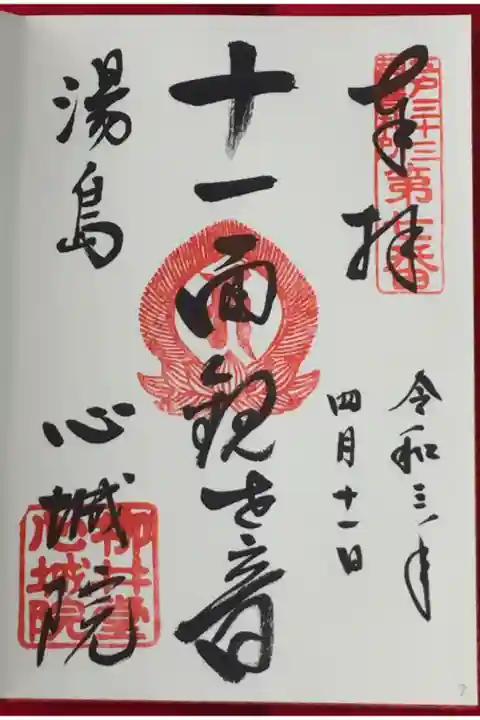 奉拝
江戸三十三観音札所第七番
令和三年
四月十一日
十一面観世音
湯島 心城院
柳井堂心城院